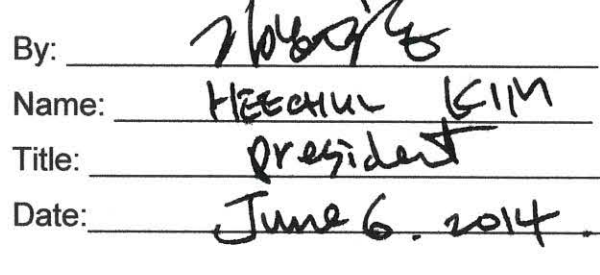 By:
Name: HEECHUL KIM
Title: president
Date: June 6. 2014.